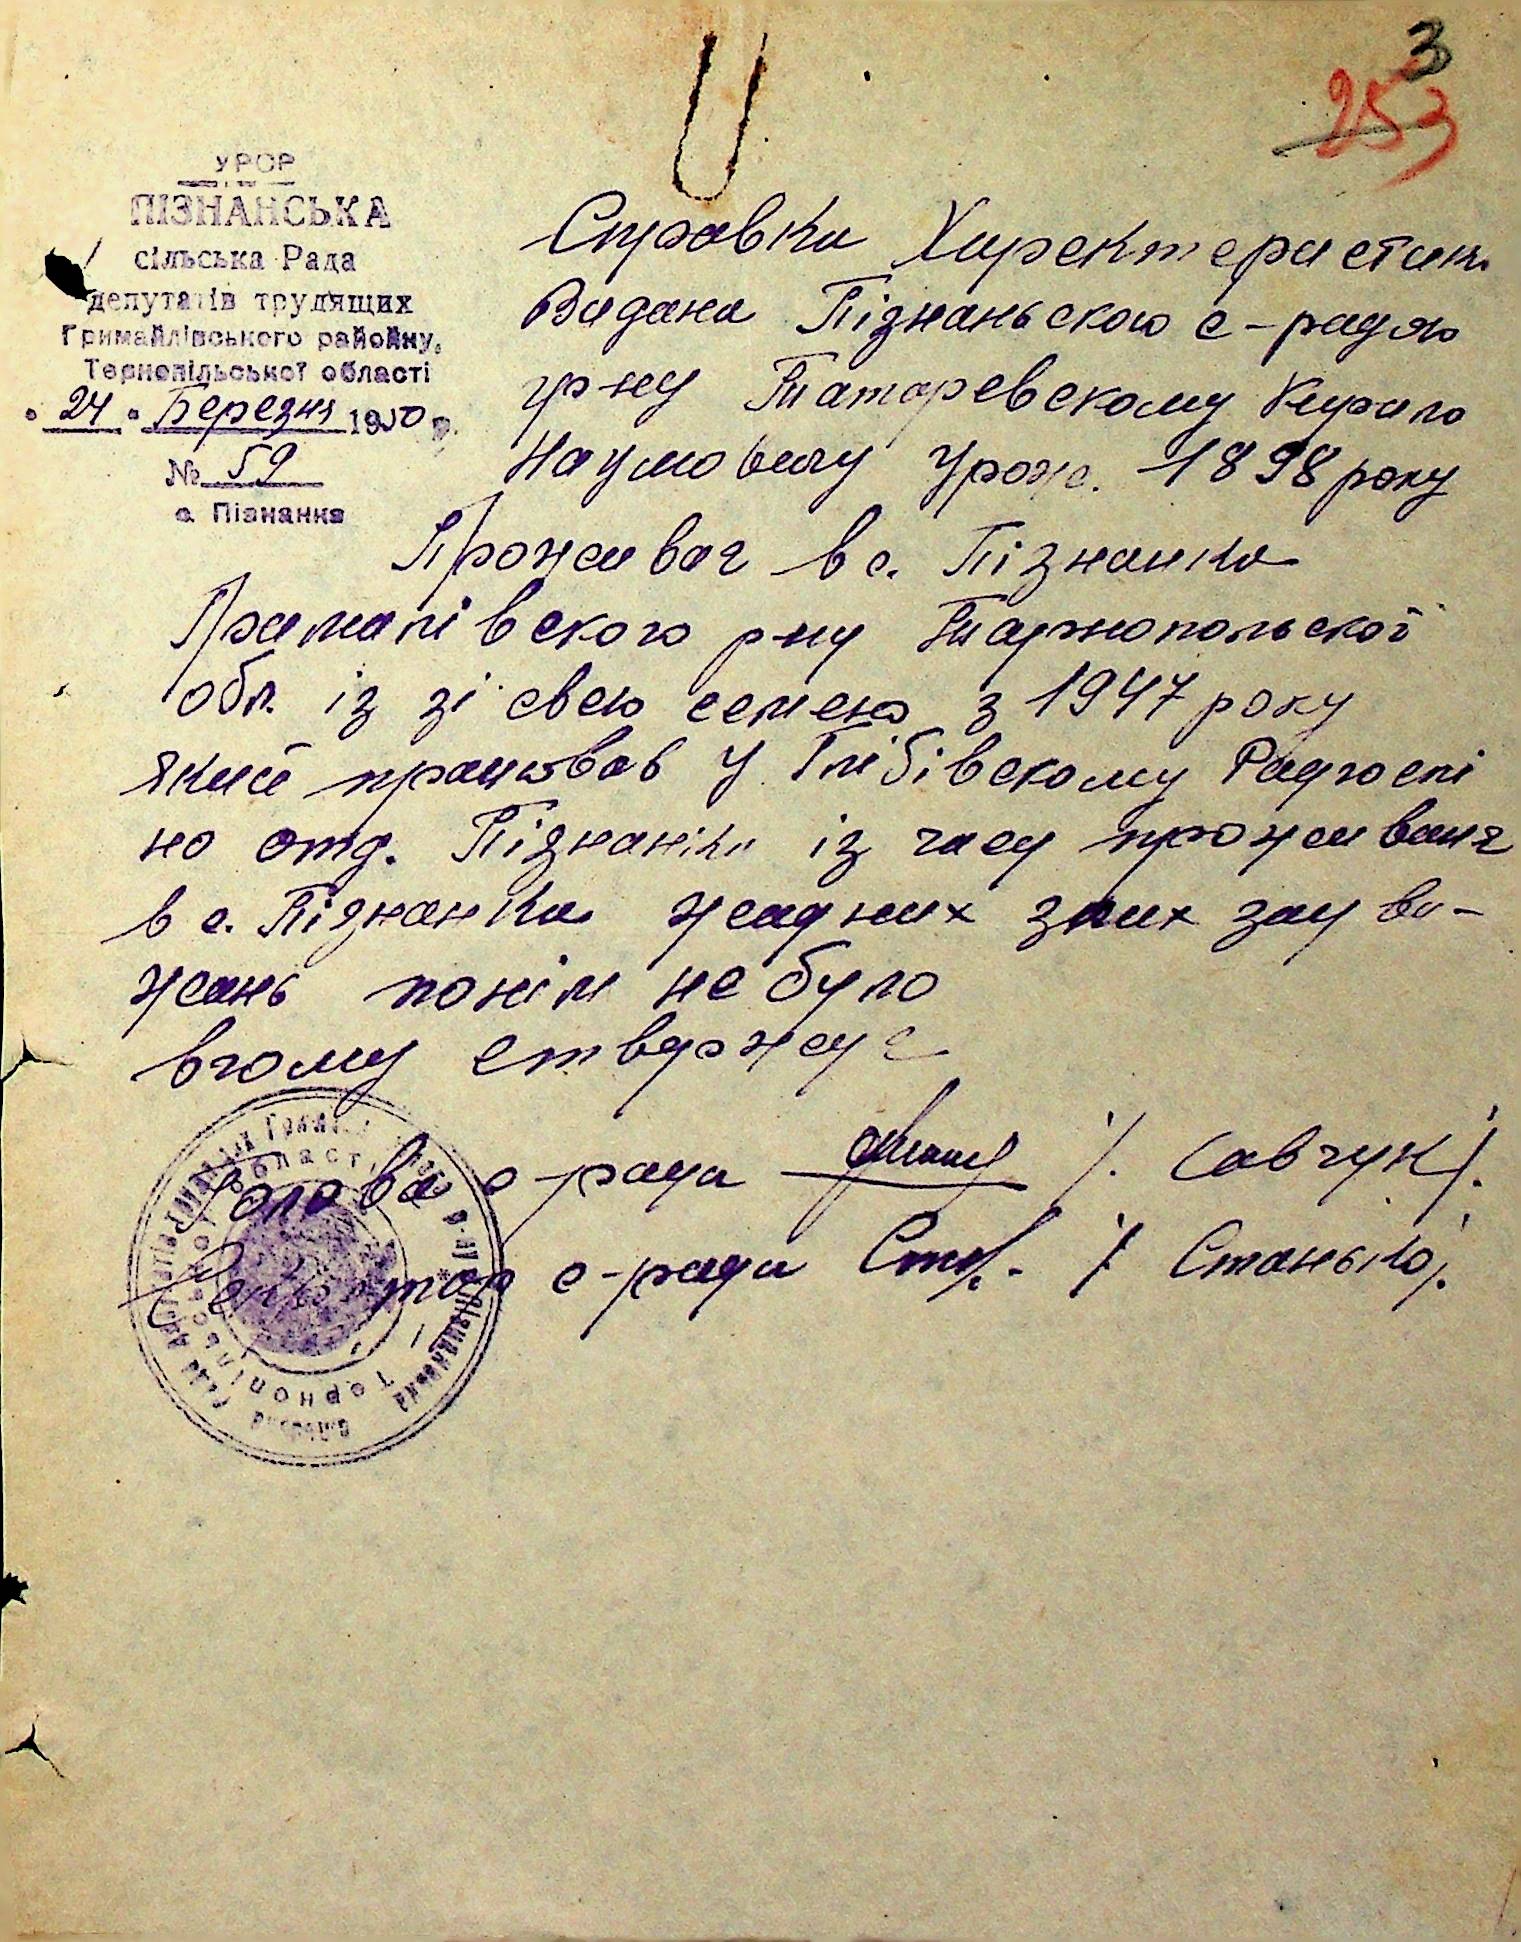 3
253
УРСР
ПІЗНАНСЬКА
сільська Рада
депутатів трудящих
Гримайлівського райойну,
Тернопільської області
"24" Березня 1950 р.
№ 59
с. Пізнанка
Справка Характеристика
Видана Пізнаньскою с-радою
гр-ну Татаревскому Кирило
Наумовичу Урож. 1898 року
Проживає в с. Пізнанка
Грималівского р-ну Тарнопольскої
обл. із зі свею семею з 1947 року
який працював у Глібівскому Радгоспі
но отд. Пізнанка із часу проживаня
в с. Пізнанка жадних злих зау ва-
жань понім не було
в чому стверджує
Голова с-ради /. Савчук /.
Секретар с-ради Стан. / Станько /.